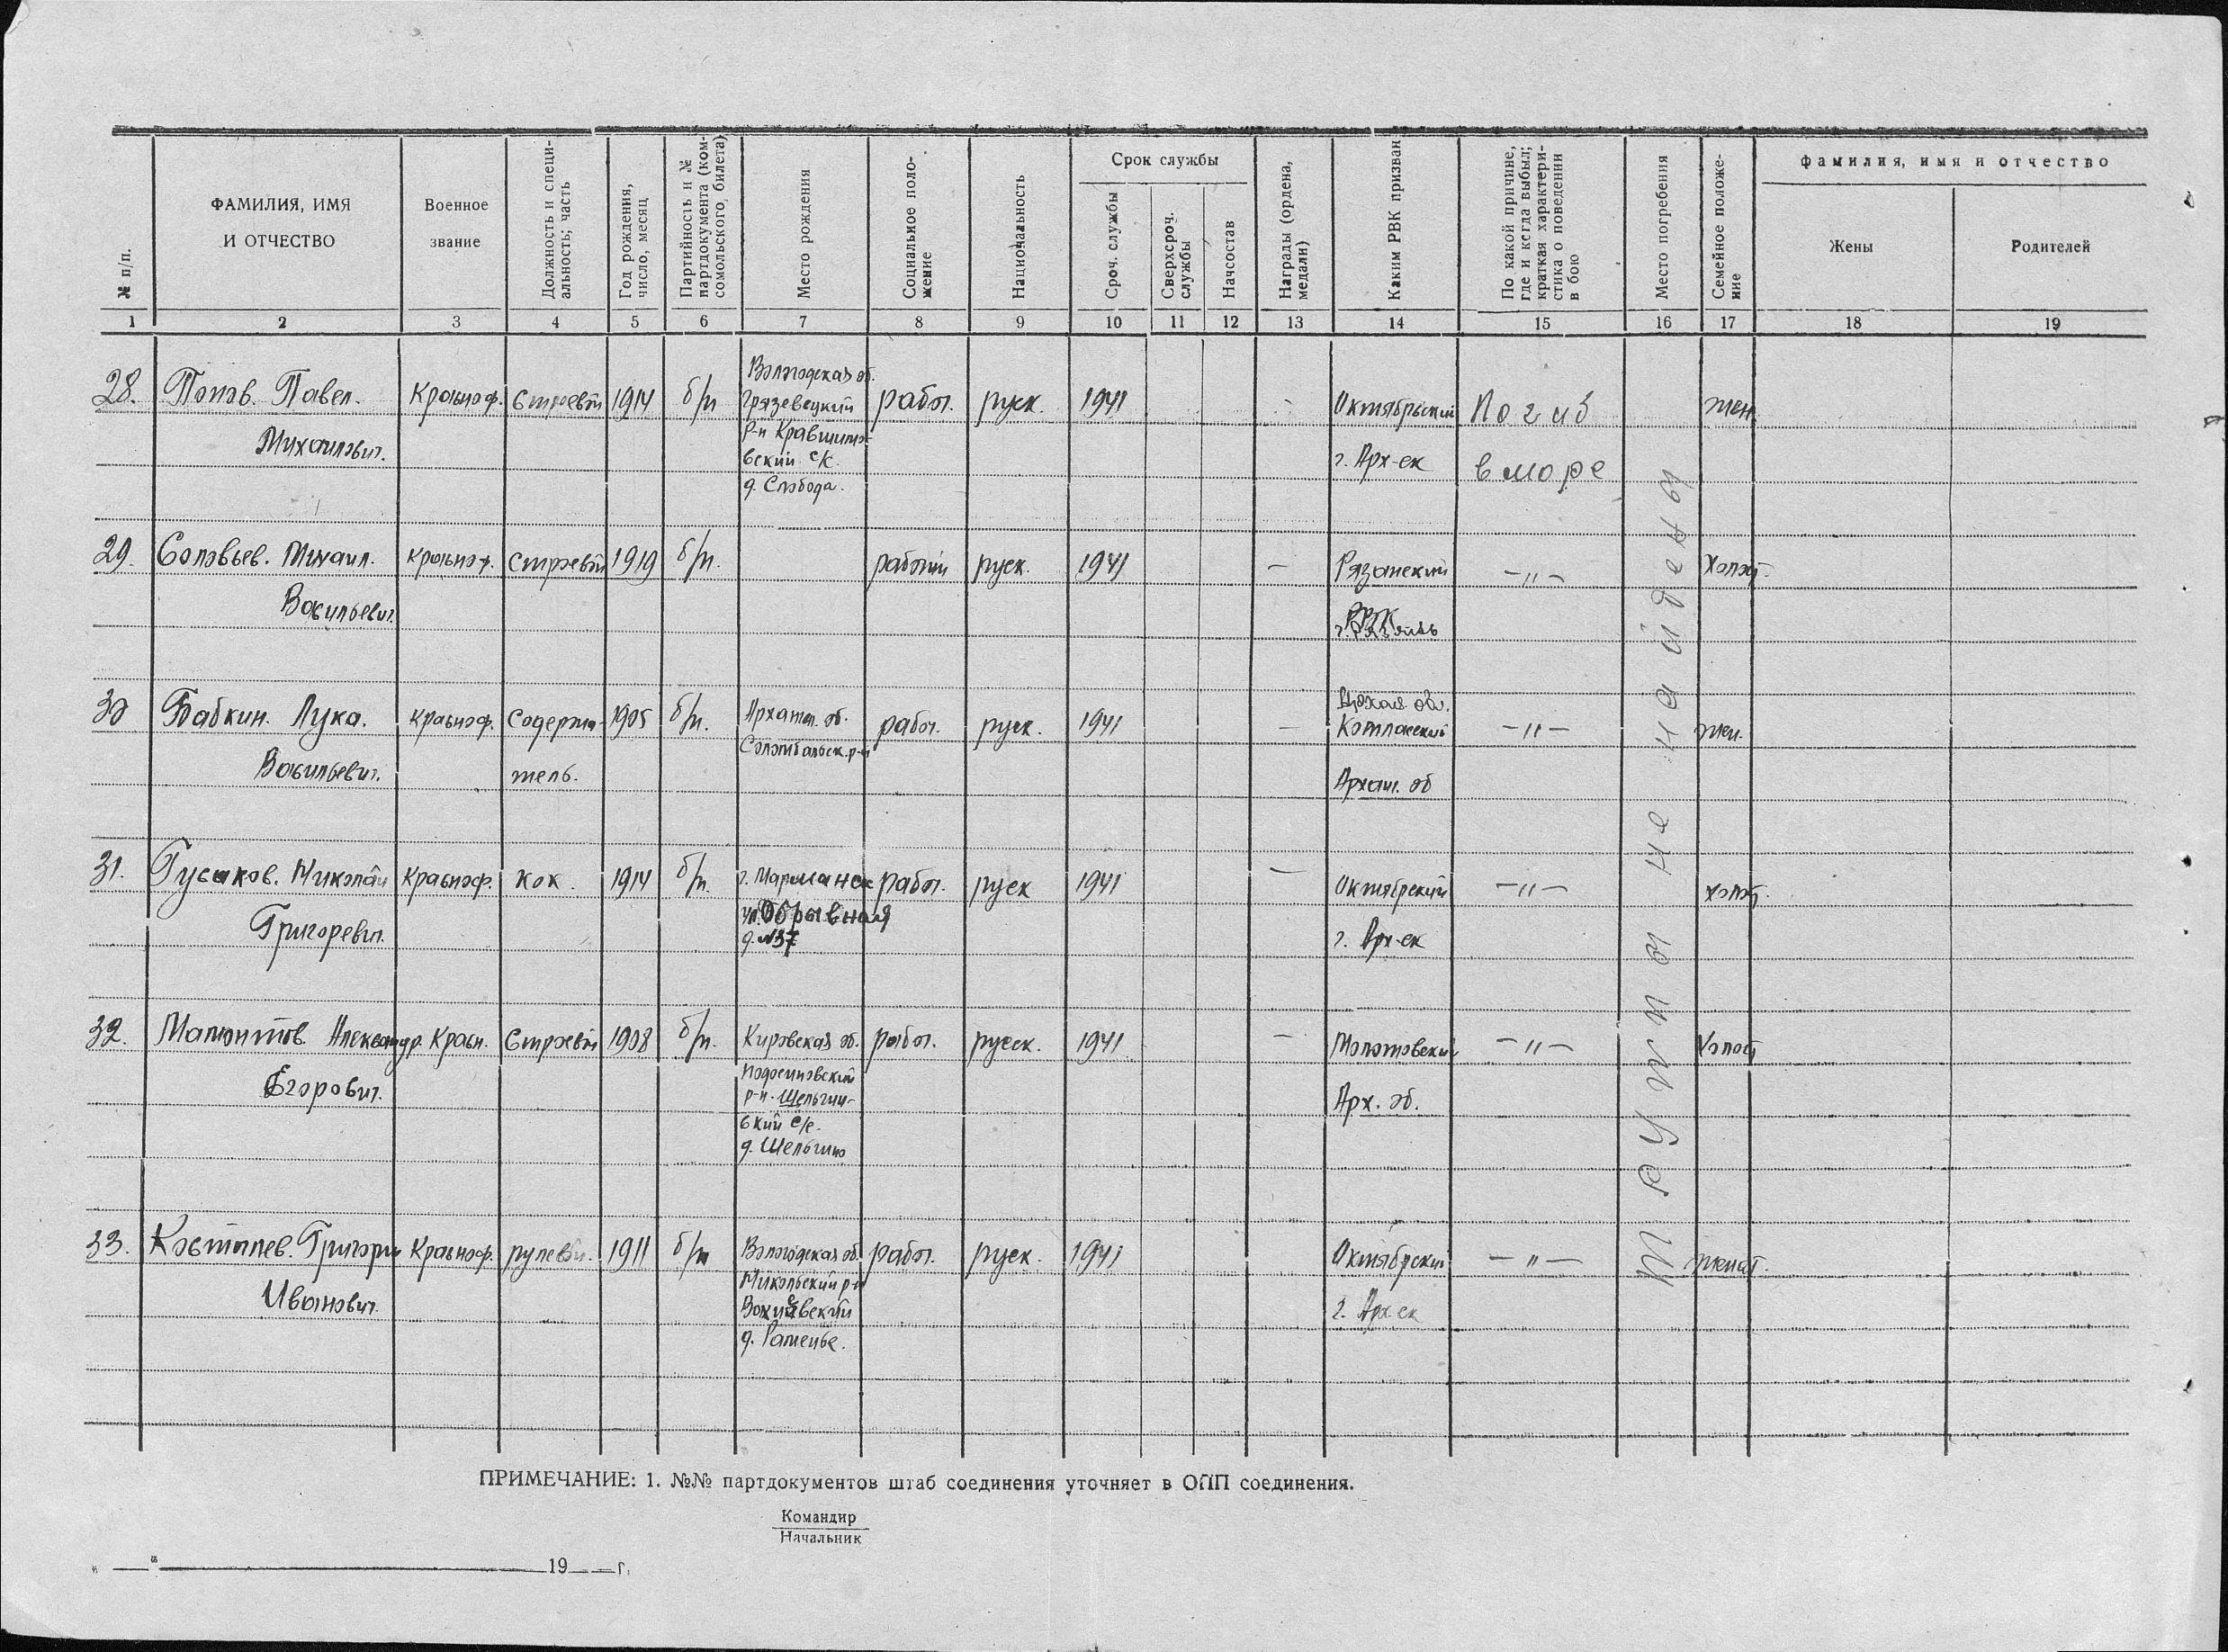 № п/п.
ФАМИЛИЯ, ИМЯ
И ОТЧЕСТВО
Военное
звание
Должность и специ-
альность; часть
Год рождения,
число, месяц
Партийность и №
партдокумента (ком-
сомольского, билета)
Место рождения
Социальное поло-
жение
Национальность
Срок службы
Сроч. службы
Сверхсроч.
службы
Начсостав
Награды (ордена,
медали)
Каким РВК призван
По какой причине,
где и когда выбыл;
краткая характери-
стика о поведении
в бою
Место погребения
Семейное положе-
ние
фамилия, имя и отчество
Жены
Родителей
1 2 3 4 5 6 7 8 9 10 11 12 13 14 15 16 17 18 19
28. Попов. Павел.
Михаилович.
Красноф.
Строевой
1914
б/п
Вологодская об.
Грязевецкий
р-н
вский с/с.
д. Слобода.
работ.
руск.
1941
-
Октябрьский
г. Арх-ск
Погиб
в море
жен
29. Соловьев. Михаил.
Васильевич.
Красноф.
Строевой
1919
б/п.
рабочий
руск.
1941
—
Рязанский
РВК
г. Рязань
—"—
Холост.
30 Бабкин. Лука.
Васильевич.
Красноф.
Содержа-
тель.
1905
б/п.
Архан. об.
Соломбальск. р-н
работ.
руск.
1941
—
Котласский
Архан. об
—"—
жен.
31. Гусаков. Николай
Григоревич.
Красноф.
кок.
1914
б/п.
г. Марманск
ул. Обрывная
д. №37
работ.
руск
1941
—
Октябрский
г. Арх-ск
—"—
холост.
32. Малютов Александр.
Егорович.
Красн.
Строевой
1908
б/п.
Кировская об.
Подосиновский
р-н. Щельгин-
ский с/с.
д. Щельгино
работ.
русск.
1941
—
Молотовский
Арх. об.
—"—
Холост
33. Костылев. Григори
Иванович.
Красноф.
рулевой.
1911
б/п
Вологодская об.
Никольский р-н
д. Раменье.
работ.
руск.
1941
Октябрский
г. Арх ск
—"—
женат.
трупы не найдены
ПРИМЕЧАНИЕ: 1. №№ партдокументов штаб соединения уточняет в ОПП соединения.
Командир
Начальник
„ — “ — 19 — г.